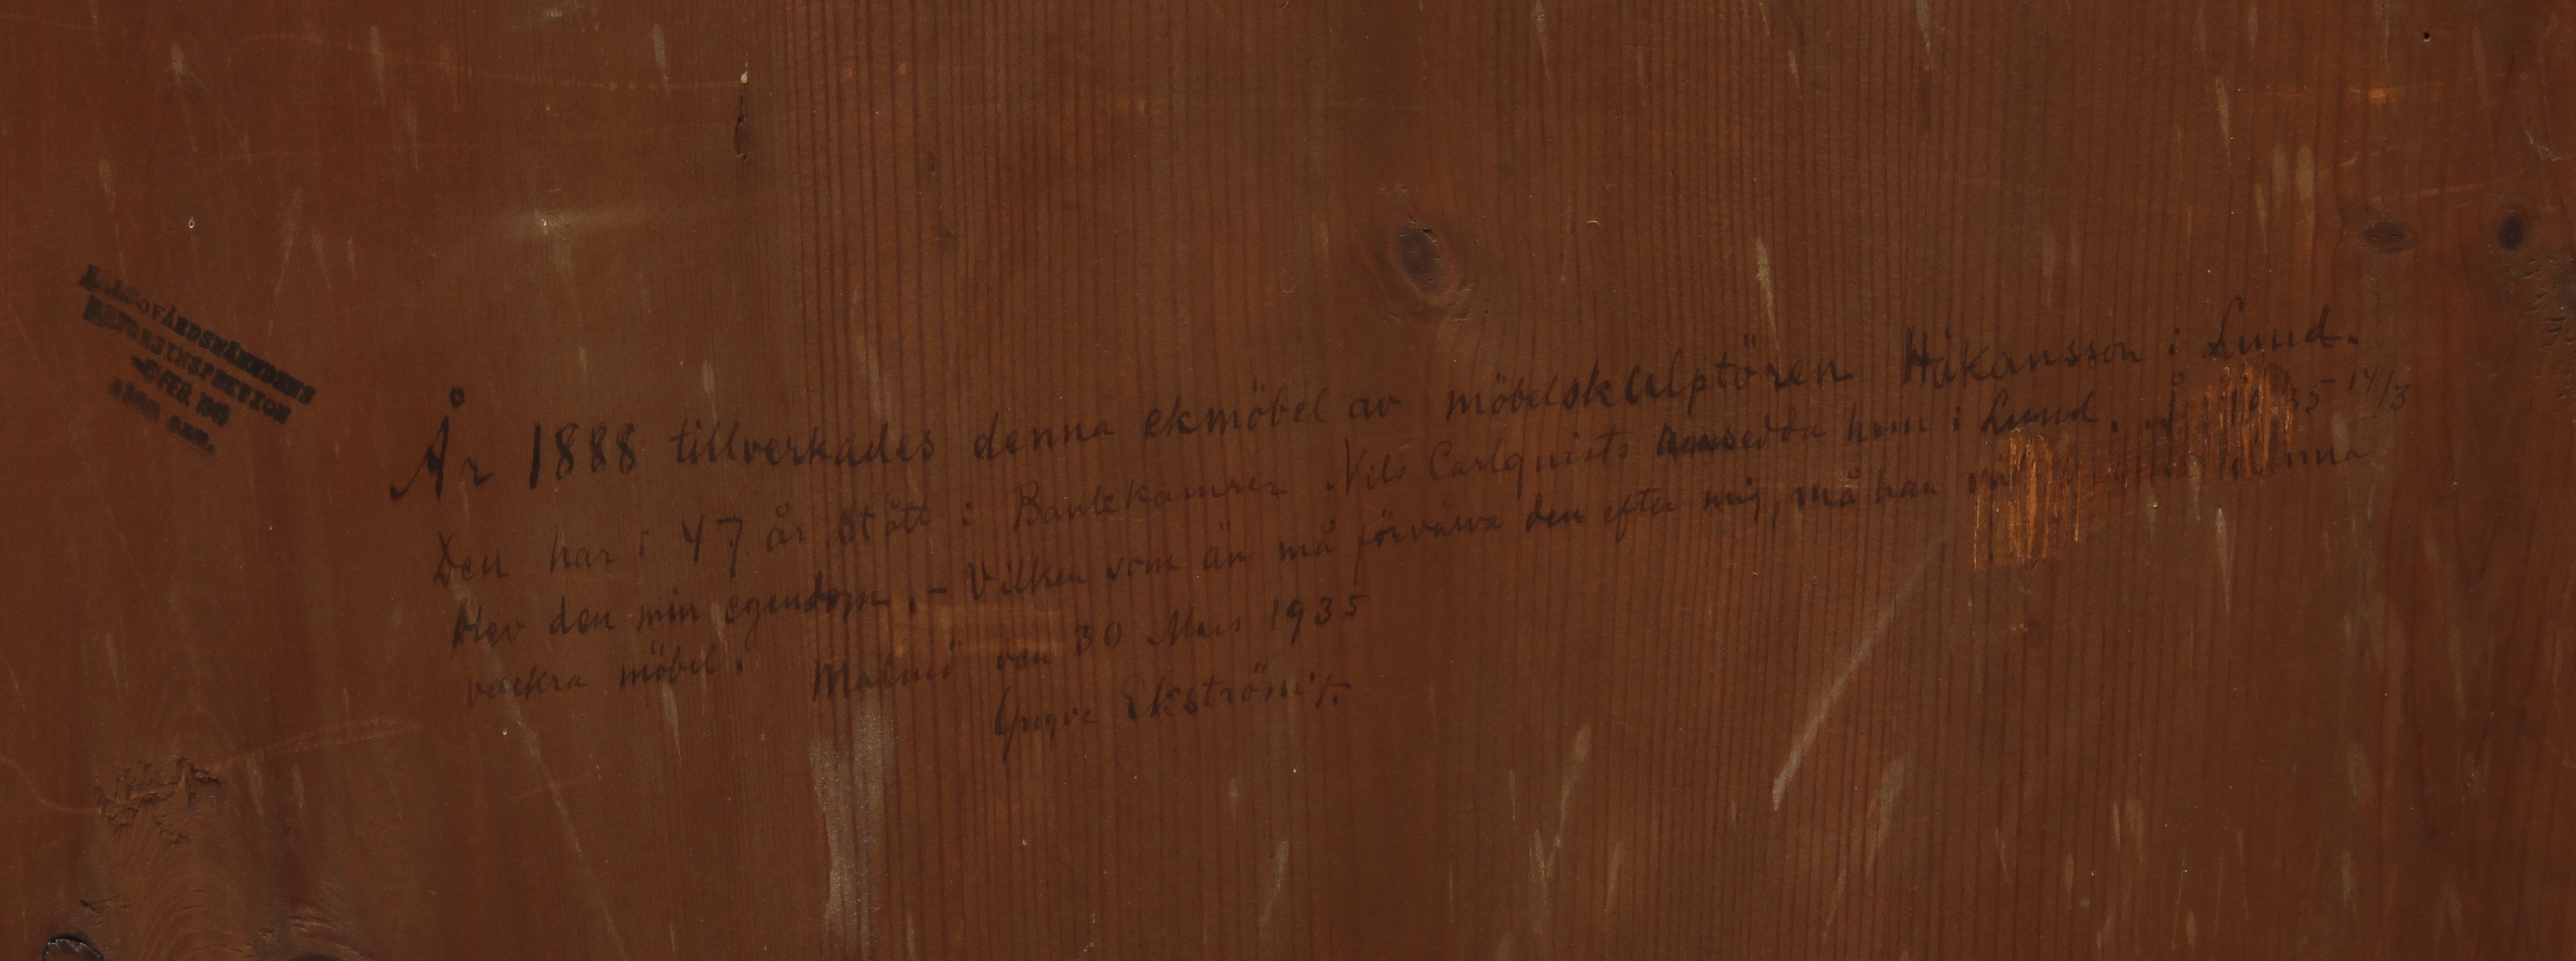 HÄLSOVÅRDSNÄMNDENS
År 1888 tillverkades denna ekmöbel av möbelskulptören Håkansson i Lund.
Den har i 47 år stått i Bankkamrer Nils Carlquists hem i Lund. År 1935 14/3
blev den min egendom. – Vilken som än må förvärva den efter mig, må han denna
vackra möbel. Malmö den 30 Mars 1935
Yngve Ekström